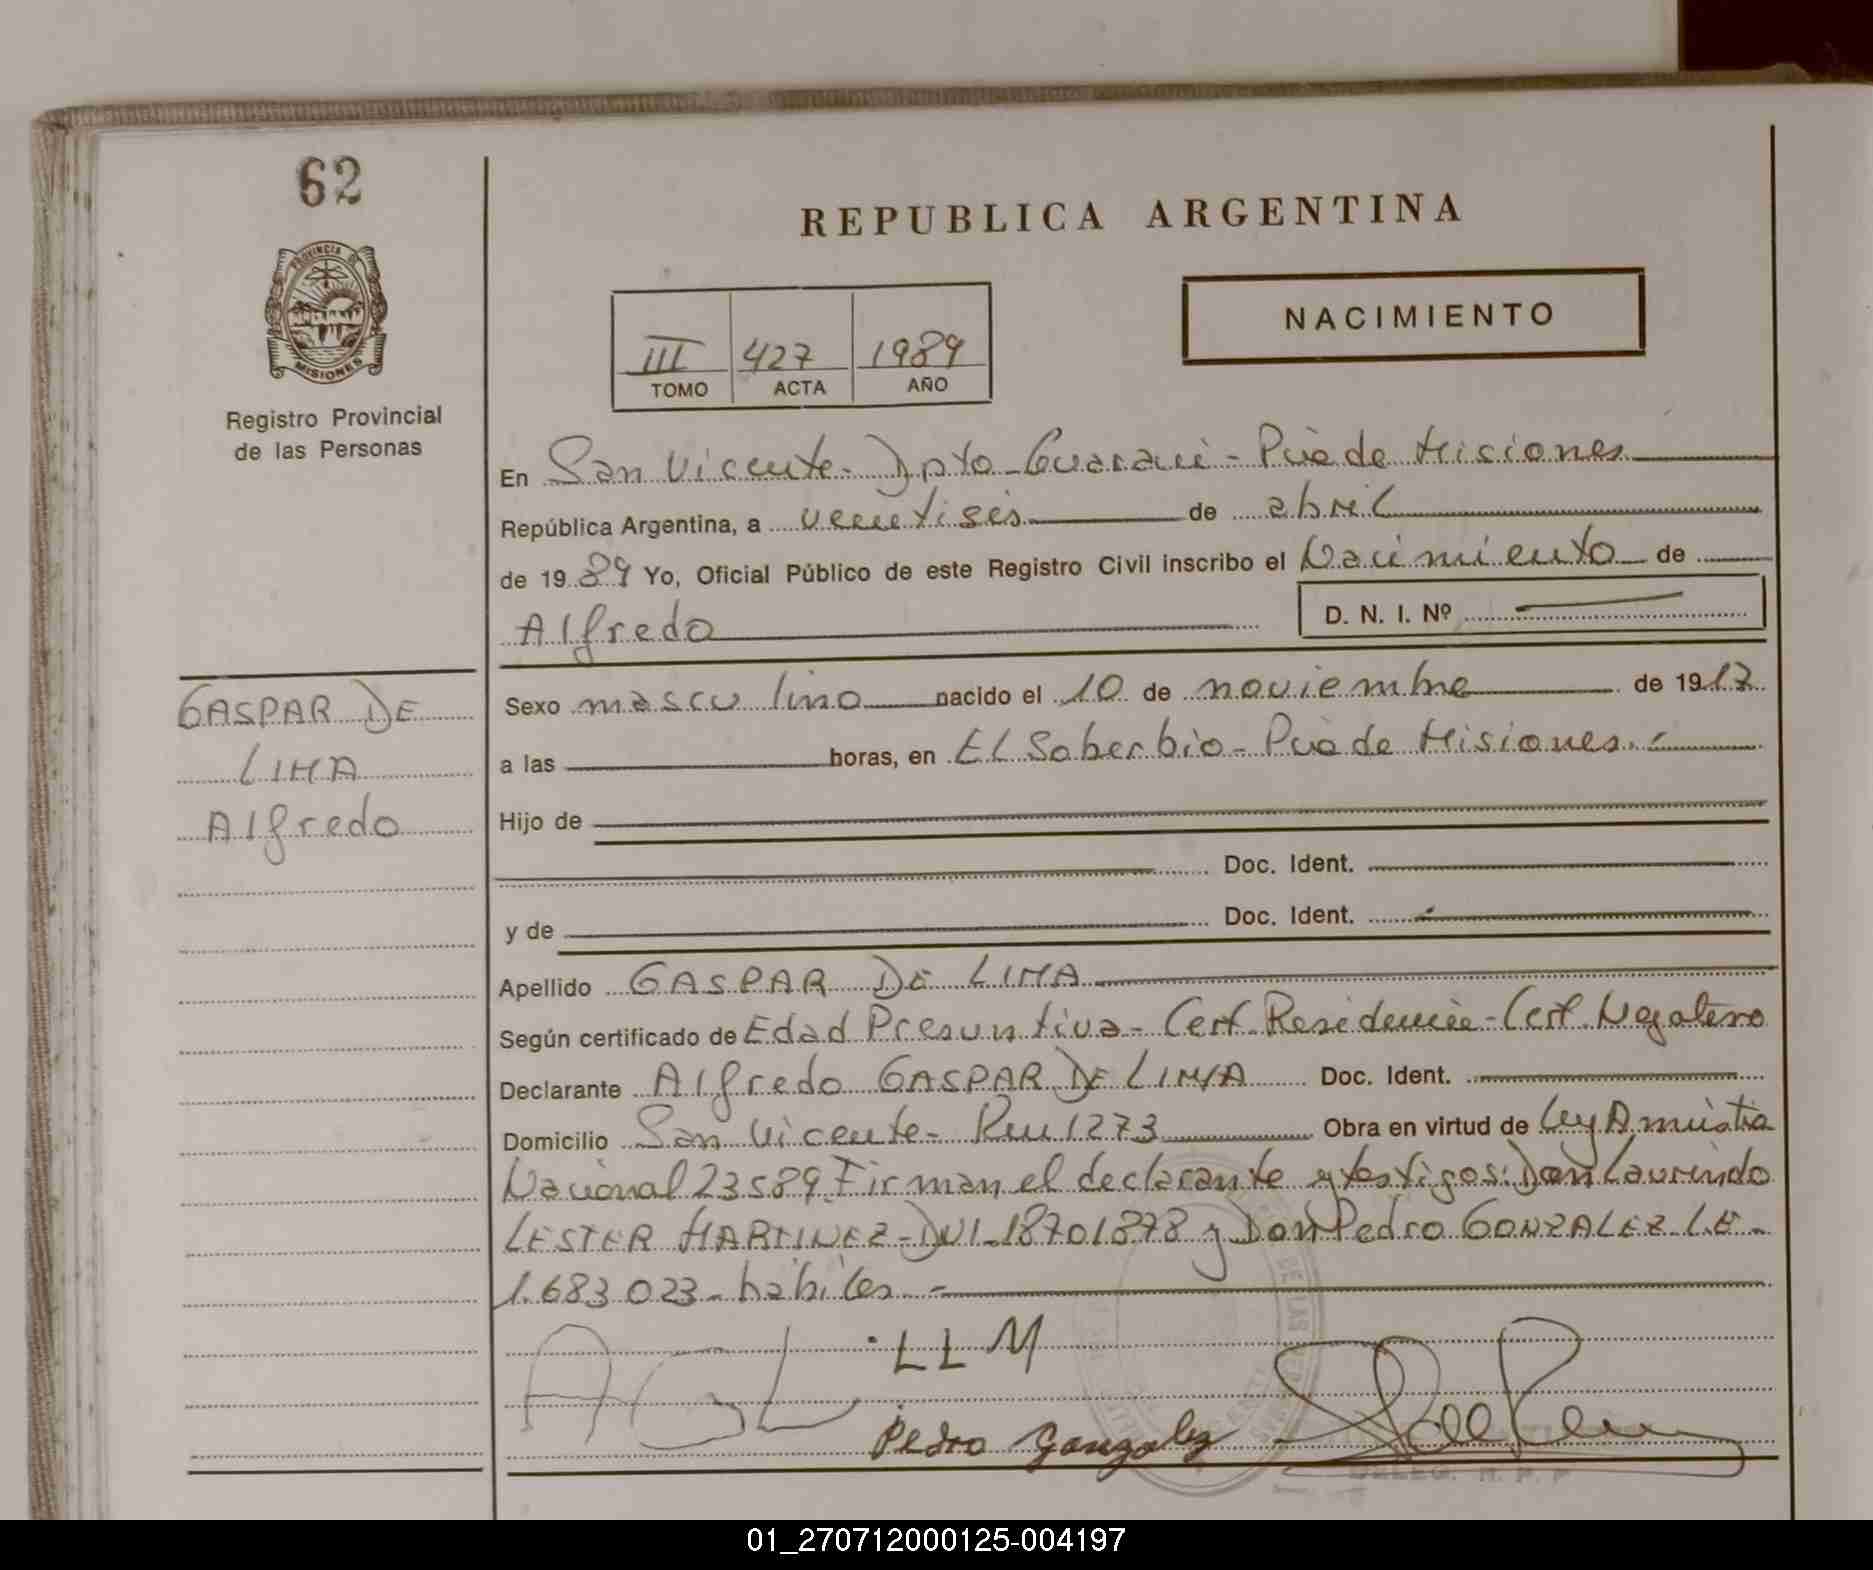 62
PROVINCIA DE
MISIONES
Registro Provincial
de las Personas
REPUBLICA ARGENTINA
NACIMIENTO
III 427 1989
TOMO ACTA AÑO
En San Vicente - Dpto Guaraní - Pcia de Misiones
República Argentina, a veintiséis de abril
de 1989 Yo, Oficial Público de este Registro Civil inscribo el Nacimiento de
Alfredo D. N. I. Nº
GASPAR DE
LIMA
Alfredo
Sexo masculino nacido el 10 de noviembre de 1917
a las horas, en El Soberbio - Pcia de Misiones. -
Hijo de
Doc. Ident.
y de Doc. Ident.
Apellido GASPAR DE LIMA
Según certificado de Edad Presuntiva - Cert. Residencia - Cert. Negativo
Declarante Alfredo GASPAR DE LIMA Doc. Ident.
Domicilio San Vicente - 1273 Obra en virtud de Ley Amnistia
Nacional 23589. Firman el declarante y testigos: Don Laurindo
LESTER MARTINEZ - DNI - 18701878 y Don Pedro GONZALEZ L.E -
1.683.023 - hábiles. -
AGL
LLM
Pedro Gonzalez
DELEG. R. P. P
01_270712000125-004197